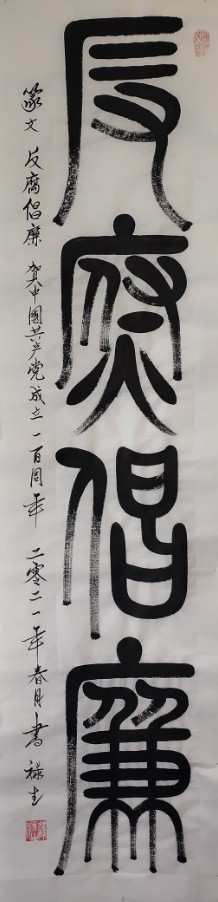 反腐倡廉
篆文 反腐倡廉 贺中國共产党成立一百周年 二零二一年春月书 禄生